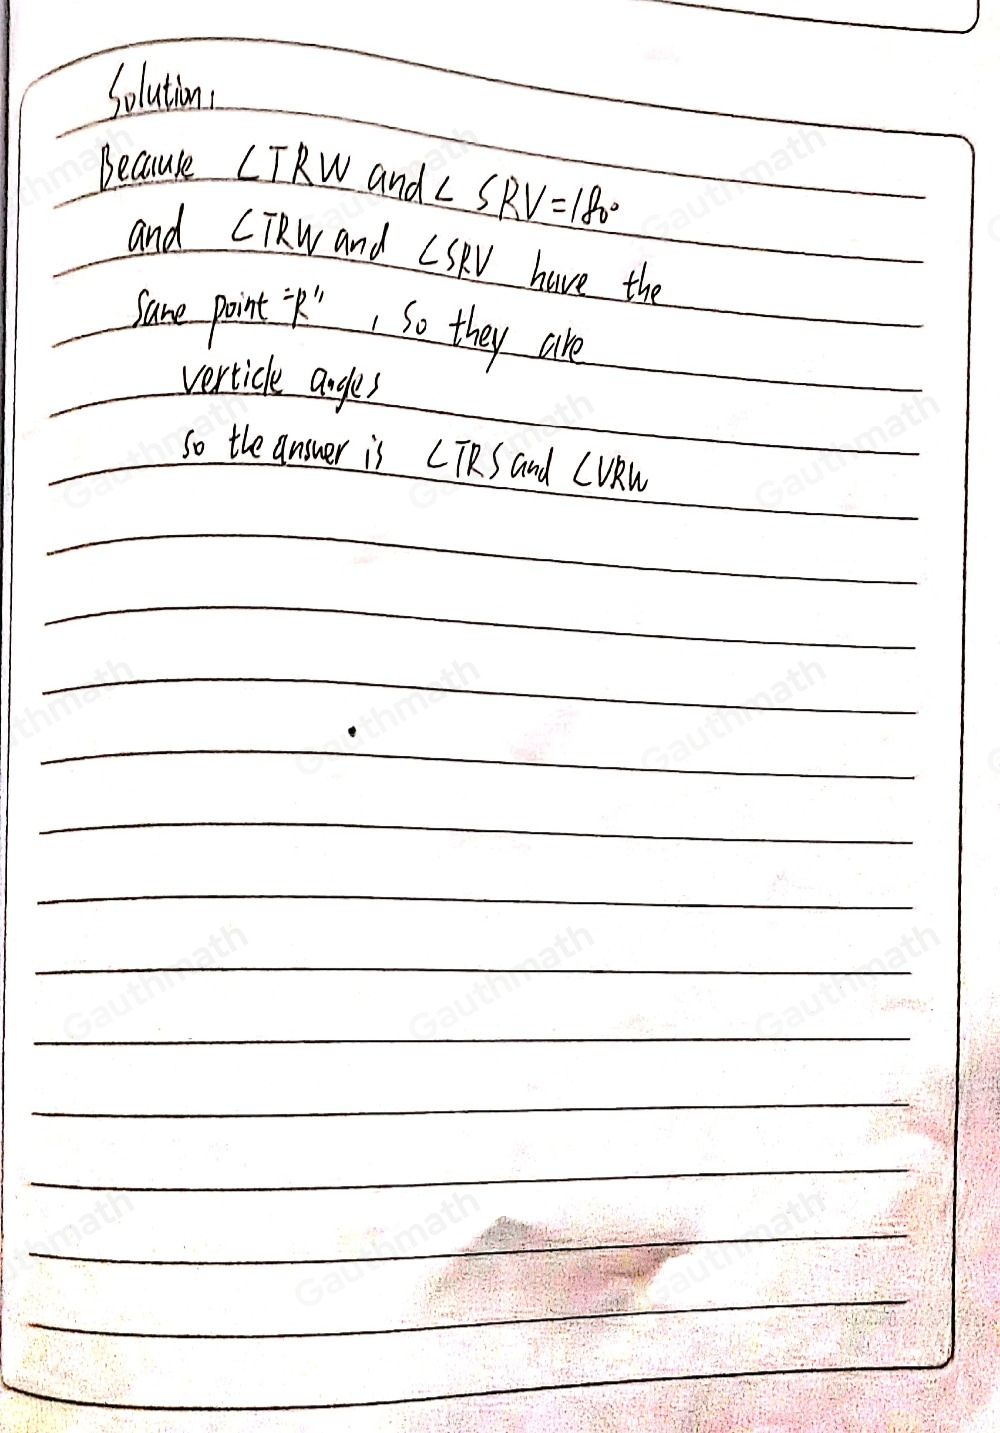 Solution,
Because ∠TRW and ∠SRV=180°
and ∠TRW and ∠SRV have the
same point "R", so they are
verticle angles
so the answer is ∠TRS and ∠VRW